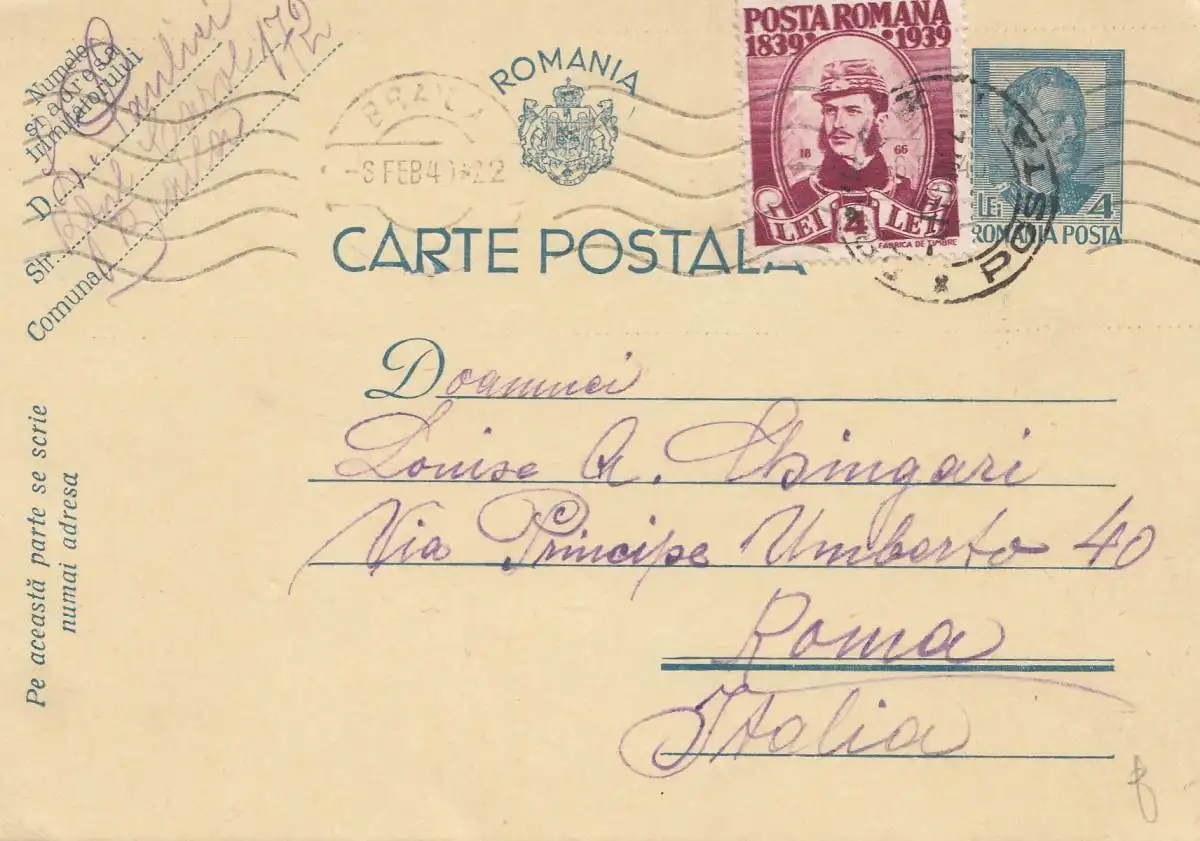 Numele
și adresa
trimițătorului
D
Str
Comuna
172
Braila
BRAILA
-8 FEB 40 22
ROMANIA
POSTA ROMANA
1839 1939
18 66
LEI 4 LEI
FABRICA DE TIMBRE
LEI 4
ROMANIA POSTA
POSTA
CARTE POSTALA
Doamnei
Louise A.
Via Principe Umberto 40
Roma
Italia
Pe această parte se scrie
numai adresa